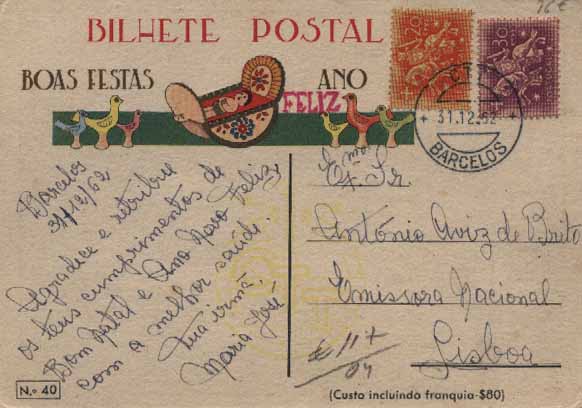 BILHETE POSTAL
BOAS FESTAS ANO
FELIZ
CTT
31.12.62
BARCELOS
Barcelos
31/12/62
Agradece e retribue
os teus cumprimentos de
Bom Natal e Ano Novo Feliz,
com a melhor saúde.
Tua irmã
Maria José
Exmo. Sr.
António Aviz de Brito
Emissora Nacional
Lisboa
N.o 40
(Custo incluindo franquia-$80)